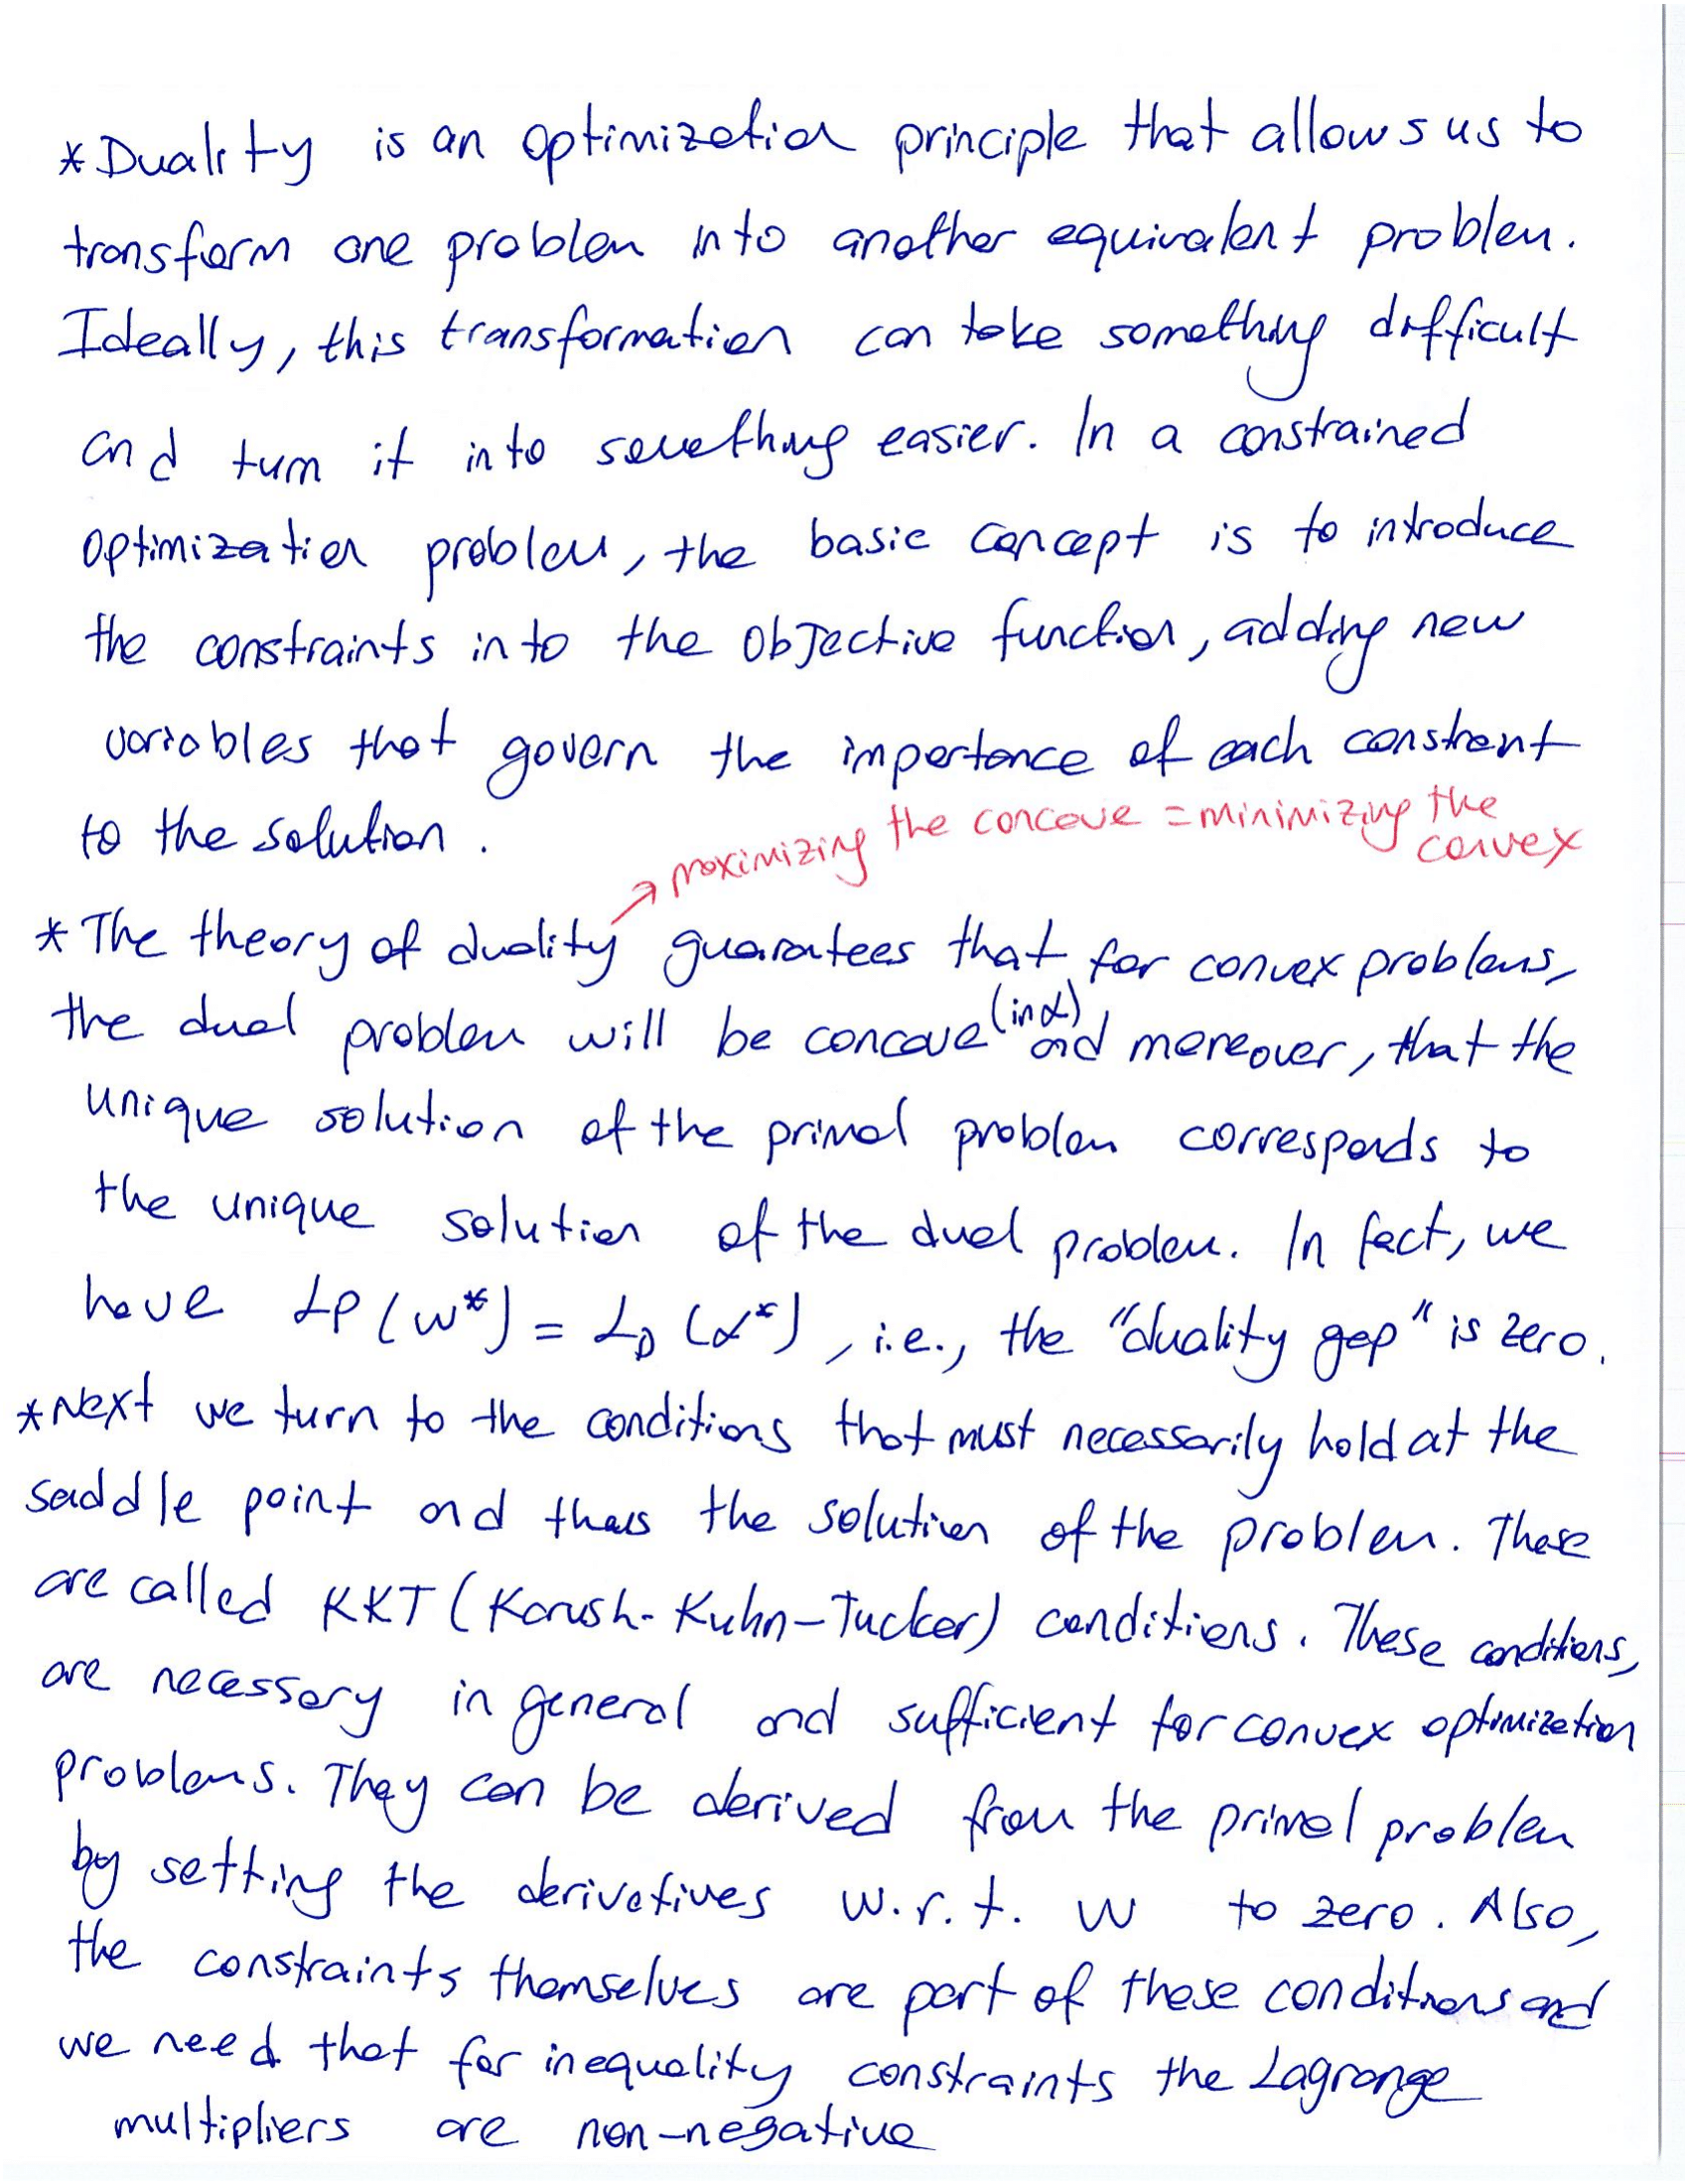 *Duality is an optimization principle that allows us to
transform one problem into another equivalent problem.
Ideally, this transformation can take something difficult
and turn it into something easier. In a constrained
optimization problem, the basic concept is to introduce
the constraints into the objective function, adding new
variables that govern the importance of each constraint
to the solution.
→ maximizing the concave = minimizing the
convex
* The theory of duality guarantees that for convex problems,
the dual problem will be concave (in α) and moreover, that the
unique solution of the primal problem corresponds to
the unique solution of the dual problem. In fact, we
have LP(w*) = L_D(α*), i.e., the "duality gap" is zero.
*Next we turn to the conditions that must necessarily hold at the
saddle point and thus the solution of the problem. These
are called KKT (Karush-Kuhn-Tucker) conditions. These conditions,
are necessary in general and sufficient for convex optimization
problems. They can be derived from the primal problem
by setting the derivatives w.r.t. w to zero. Also,
the constraints themselves are part of these conditions and
we need that for inequality constraints the Lagrange
multipliers are non-negative